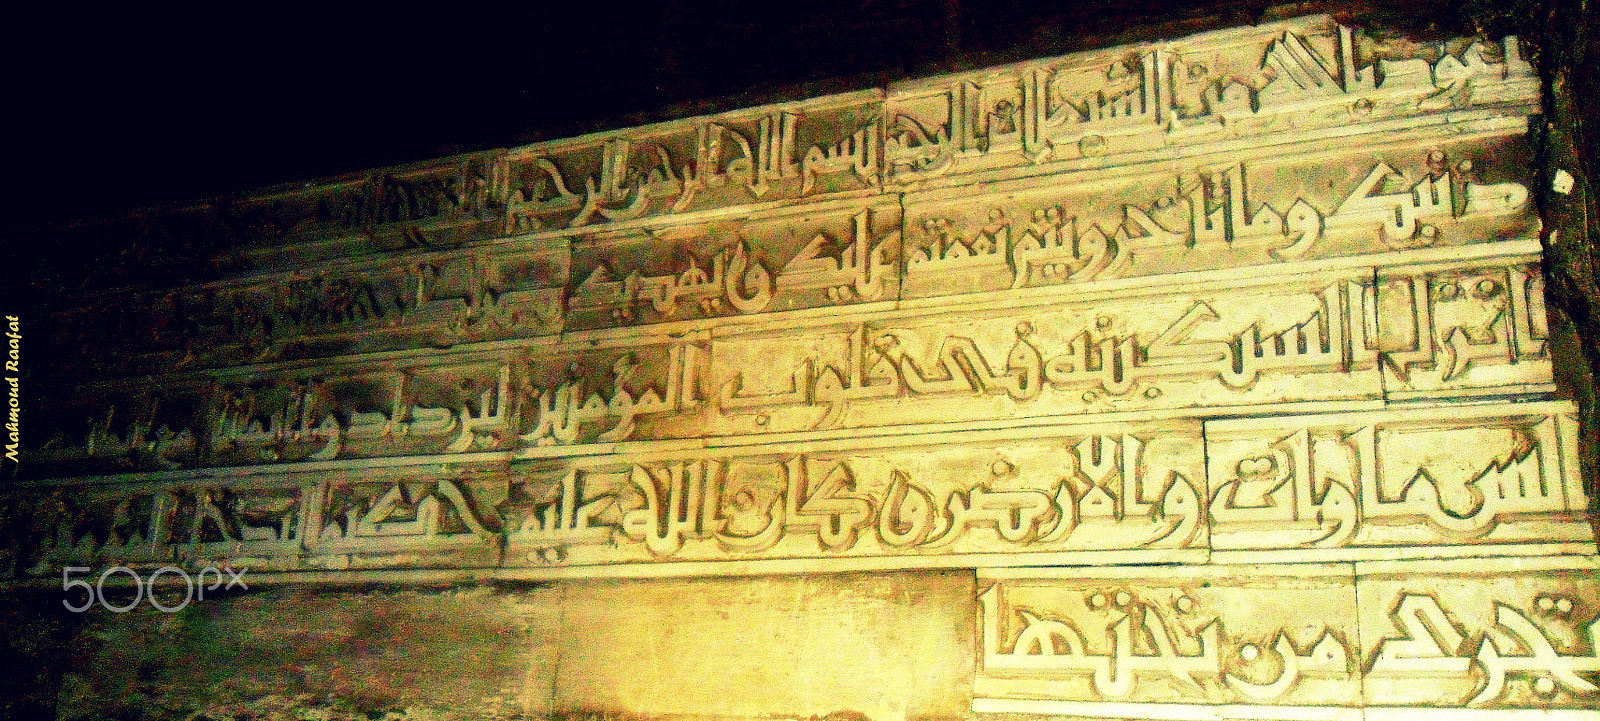 أعوذ بالله من الشيطان الرجيم بسم الله الرحمن الرحيم إنا فتحنا
ذنبك وما تأخر ويتم نعمته عليك ويهديك صراطا
أنزل السكينة في قلوب المؤمنين ليزدادوا إيمانا مع إيمانهم
السماوات والأرض وكان الله عليما حكيما ليدخل المؤمنين
تجري من تحتها
Mahmoud Raafat
500px